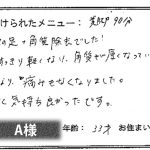 けられたメニュー: 美脚 90分
の足の角質除去でした!
っきり軽くなり、角質が厚くなってい
なり、痛みもなくなりました。
く気持ち良かったです。
A様 年齢: 33才 お住まい